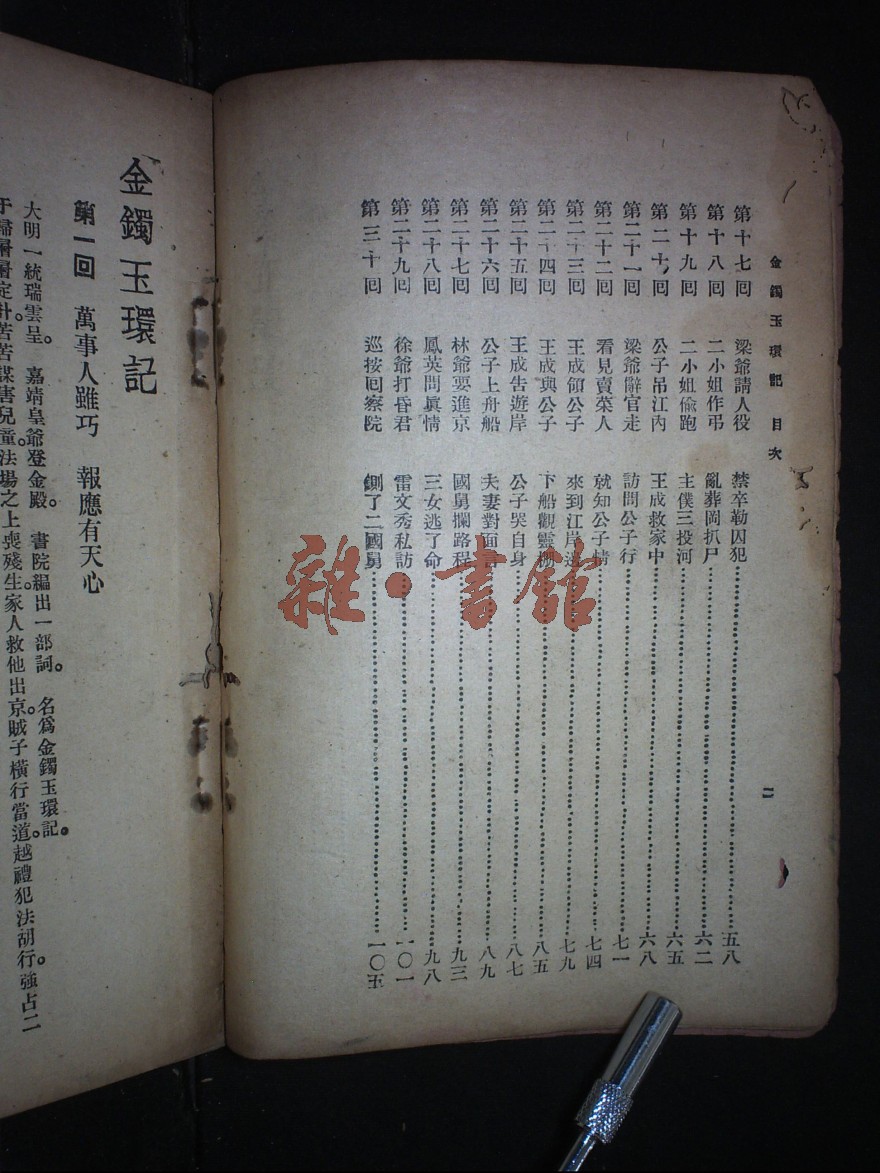 金鐲玉環記 目次
二
第十七囘 梁爺請人役 禁卒勒囚犯 五八
第十八囘 二小姐作弔 亂葬岡扒尸 六二
第十九囘 二小姐偸跑 主僕三投河 六五
第二十囘 公子吊江內 王成救家中 六八
第二十一囘 梁爺辭官走 訪問公子行 七一
第二十二囘 看見賣菜人 就知公子情 七四
第二十三囘 王成領公子 來到江岸邊 七九
第二十四囘 王成與公子 下船觀靈棚 八五
第二十五囘 王成告遊岸 公子哭自身 八七
第二十六囘 公子上舟船 夫妻對面 八九
第二十七囘 林爺要進京 國舅攔路程 九三
第二十八囘 鳳英問眞情 三女逃了命 九八
第二十九囘 徐爺打昏君 雷文秀私訪 一〇一
第三十囘 巡按囘察院 鍘了二國舅 一〇五
雜·書館
金鐲玉環記
第一囘 萬事人雖巧 報應有天心
大明一統瑞雲呈。嘉靖皇爺登金殿。書院編出一部詞。名爲金鐲玉環記。
定計苦苦謀害兒童。法場之上喪殘生。家人救他出京。賊子橫行當道。越禮犯法胡行。強占二